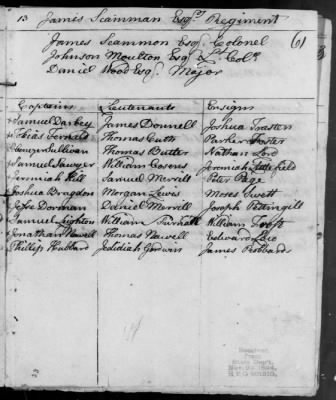 13 James Scamman Esqr. Regiment
James Scammon Esq. Colonel (6)
Johnson Moulton Esq. Lt. Colo.
Daniel Wood Esq. Major
Captains Lieutenants Ensigns
Samuel Darbey James Donnell Joshua Trasten
Tobias Fernald Thomas Cutts Parker Foster
Sullivan Thomas Butler Nathan Lord
Samuel Sawyer William Jeremiah Littlefield
Jeremiah Hill Samuel Merrill Peter Page
Joshua Bragdon Morgan Lewis Moses Swett
Jesse Dorman Daniel Merrill Joseph Pettingill
Samuel Leighton William Frost
Jonathan Nowell Thomas Nowell Edward Low
Phillip Hubbard Jedidiah Goodwin James Robbards
Received
From
State Dept.
1894,